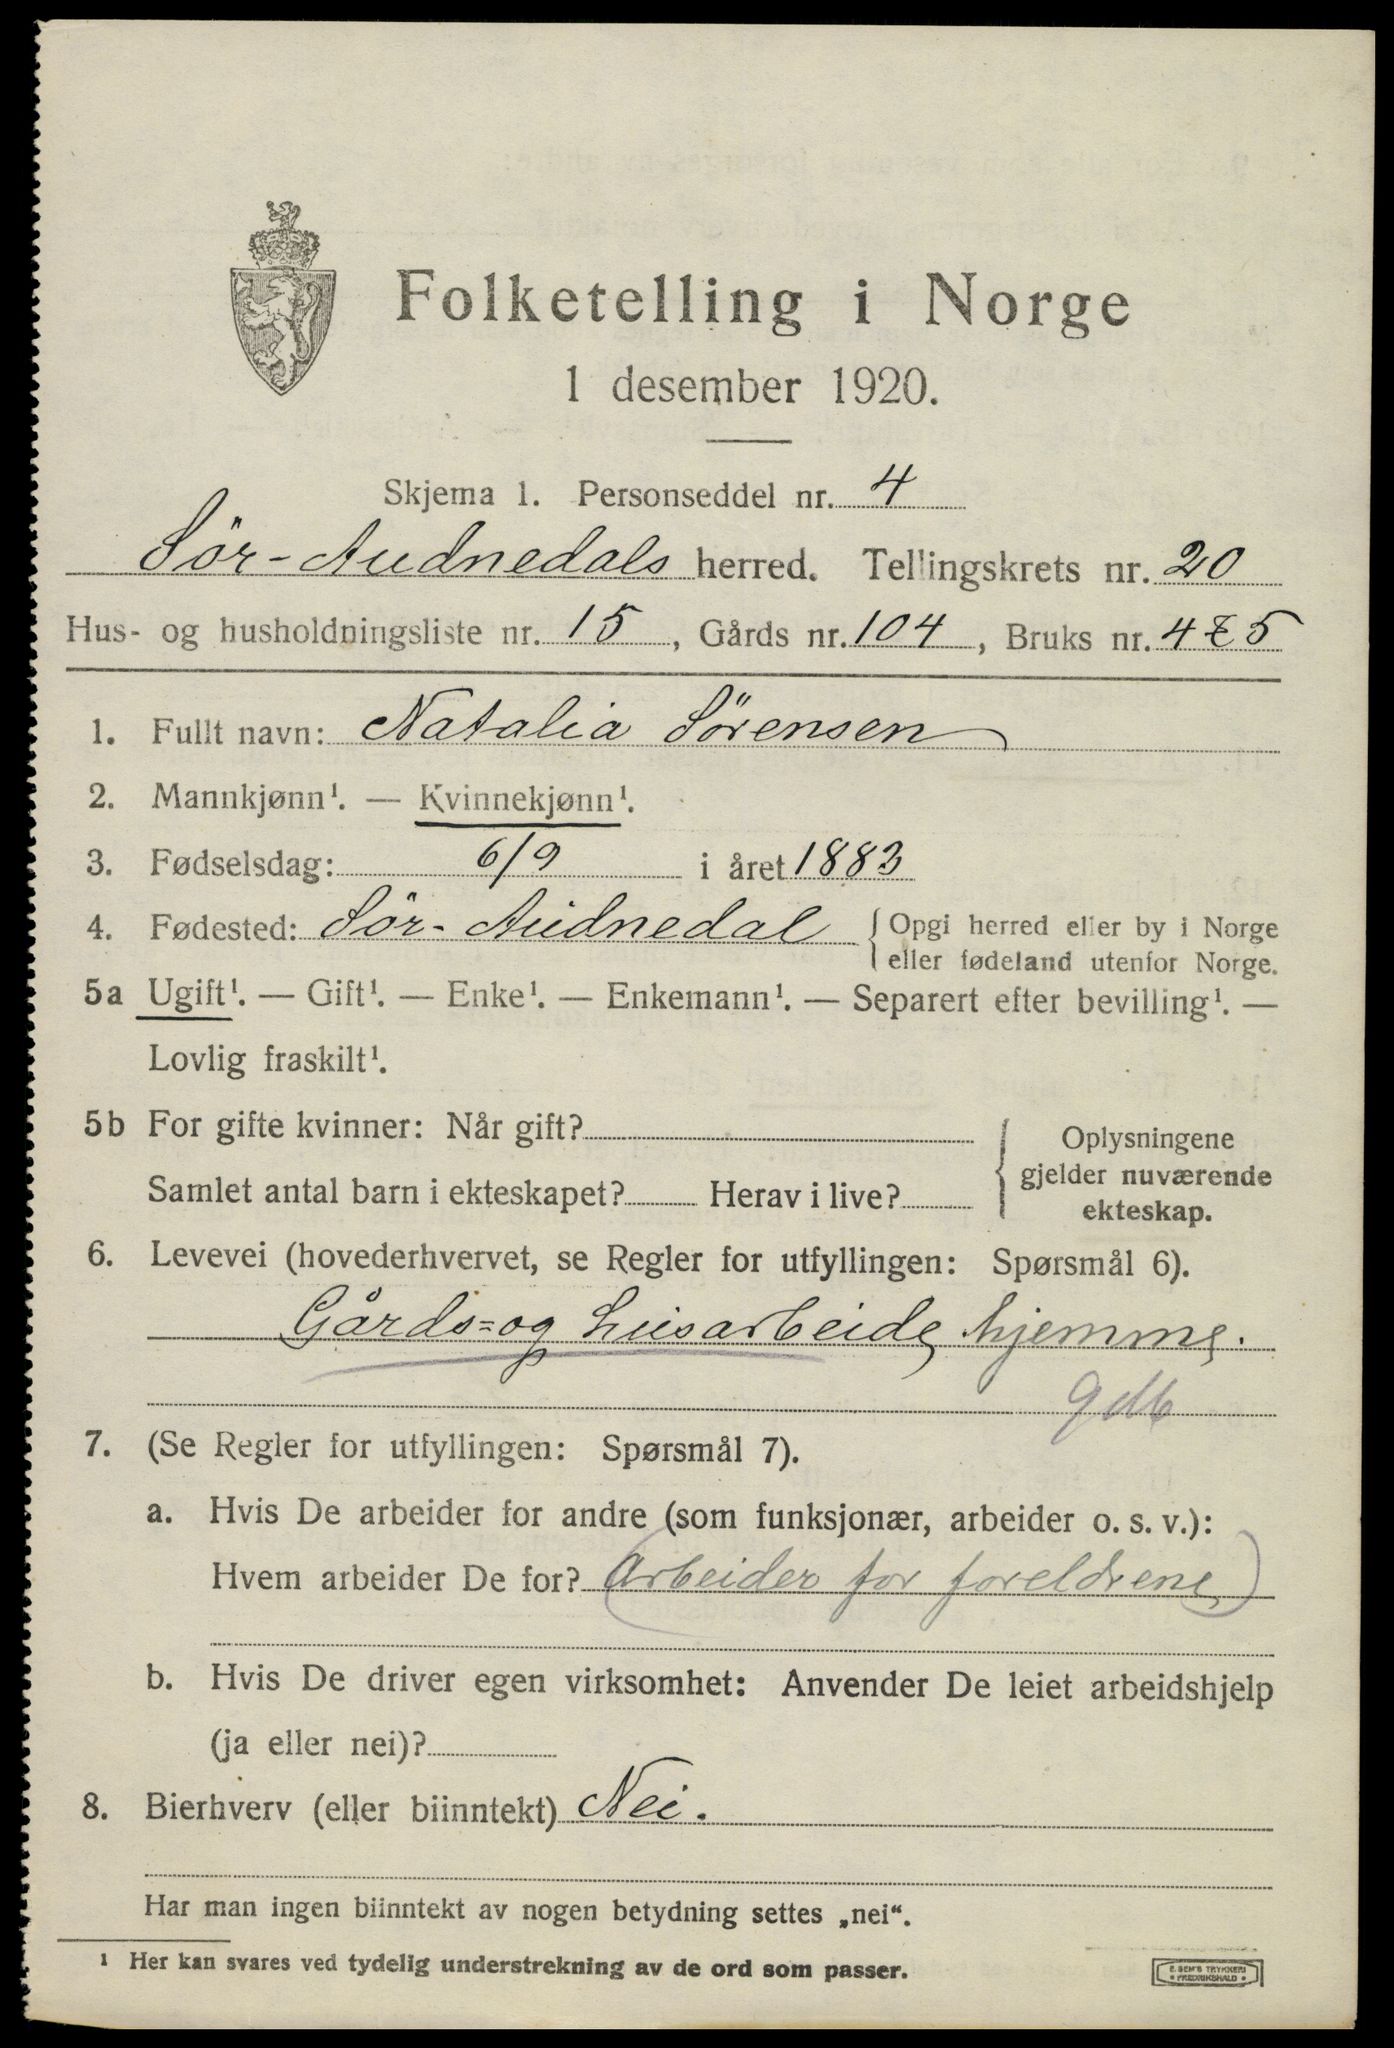 Folketelling i Norge
1 desember 1920.
Skjema 1. Personseddel nr. 4
Sör-Audnedals herred. Tellingskrets nr. 20
Hus- og husholdningsliste nr. 15, Gårds nr. 104, Bruks nr. 4 & 5
1. Fullt navn: Natalia Sörensen
2. Mannkjønn¹. — Kvinnekjønn¹.
3. Fødselsdag: 6/9 i året 1883
4. Fødested: Sör-Audnedal { Opgi herred eller by i Norge
eller fødeland utenfor Norge.
5a Ugift¹. — Gift¹. — Enke¹. — Enkemann¹. — Separert efter bevilling¹. —
Lovlig fraskilt¹.
5b For gifte kvinner: Når gift?
Samlet antal barn i ekteskapet? Herav i live?
Oplysningene
gjelder nuværende
ekteskap.
6. Levevei (hovederhvervet, se Regler for utfyllingen: Spørsmål 6).
Gårds=og husarbeide hjemme.
7. (Se Regler for utfyllingen: Spørsmål 7).
a. Hvis De arbeider for andre (som funksjonær, arbeider o. s. v.):
Hvem arbeider De for? (Arbeider for foreldrene)
b. Hvis De driver egen virksomhet: Anvender De leiet arbeidshjelp
(ja eller nei)?
8. Bierhverv (eller biinntekt) Nei.
Har man ingen biinntekt av nogen betydning settes „nei“.
¹ Her kan svares ved tydelig understrekning av de ord som passer.
E. SEM'S TRYKKERI
FREDRIKSHALD